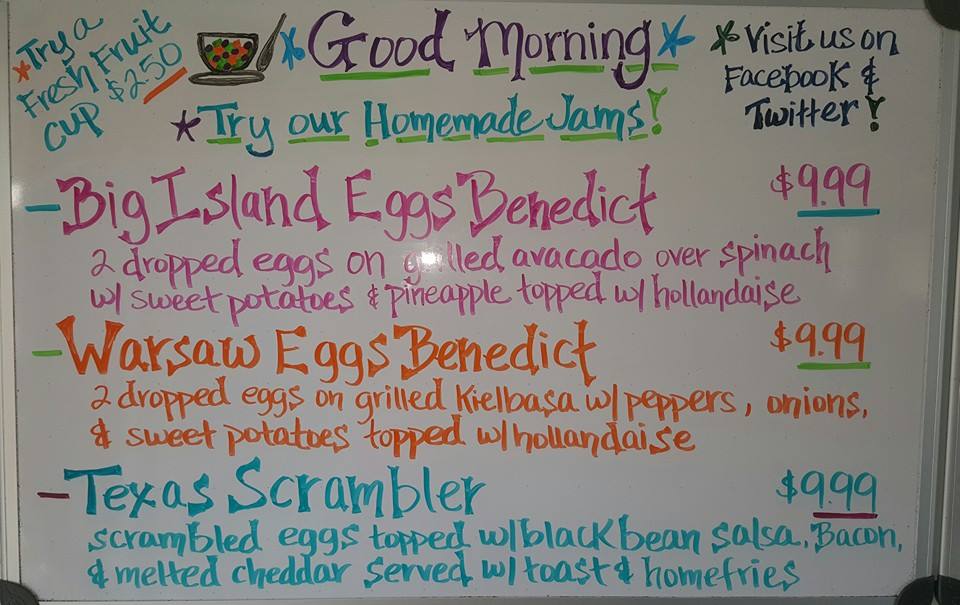 *Try a
Fresh Fruit
cup $2.50
*Good Morning*
*Try our Homemade Jams!
*Visit us on
Facebook &
Twitter!
-Big Island Eggs Benedict $9.99
2 dropped eggs on grilled avacado over spinach
w/ sweet potatoes & pineapple topped w/ hollandaise
-Warsaw Eggs Benedict $9.99
2 dropped eggs on grilled Kielbasa w/ peppers, onions,
& sweet potatoes topped w/ hollandaise
-Texas Scrambler $9.99
scrambled eggs topped w/ black bean salsa, Bacon,
& melted cheddar served w/ toast & homefries